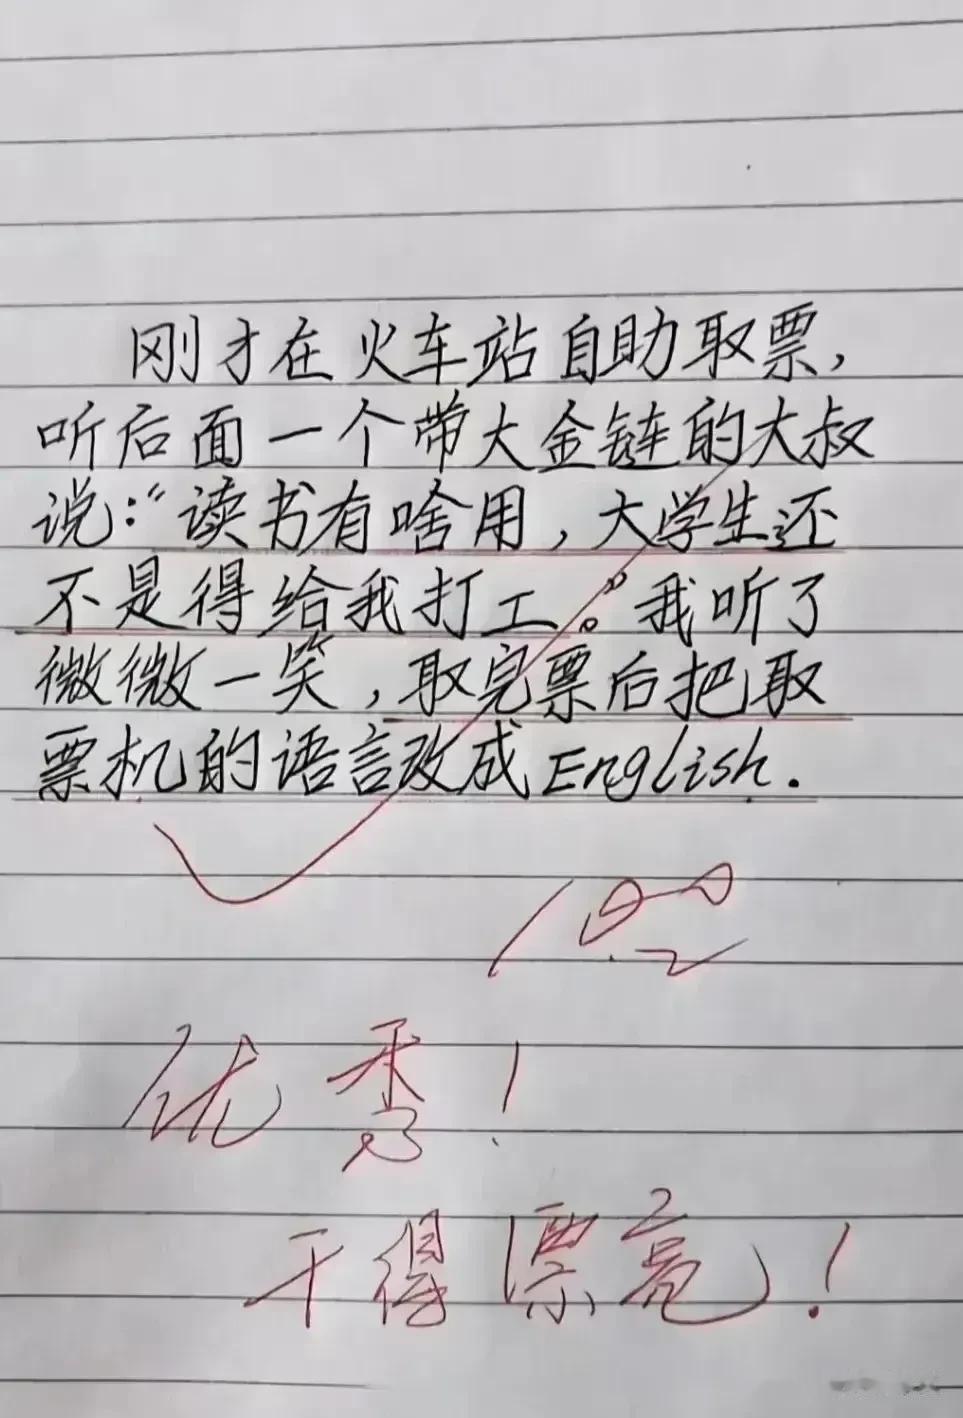 刚才在火车站自助取票,
听后面一个带大金链的大叔
说:“读书有啥用,大学生还
不是得给我打工。”我听了
微微一笑,取完票后把取
票机的语言改成English.
100
优秀!
干得漂亮!